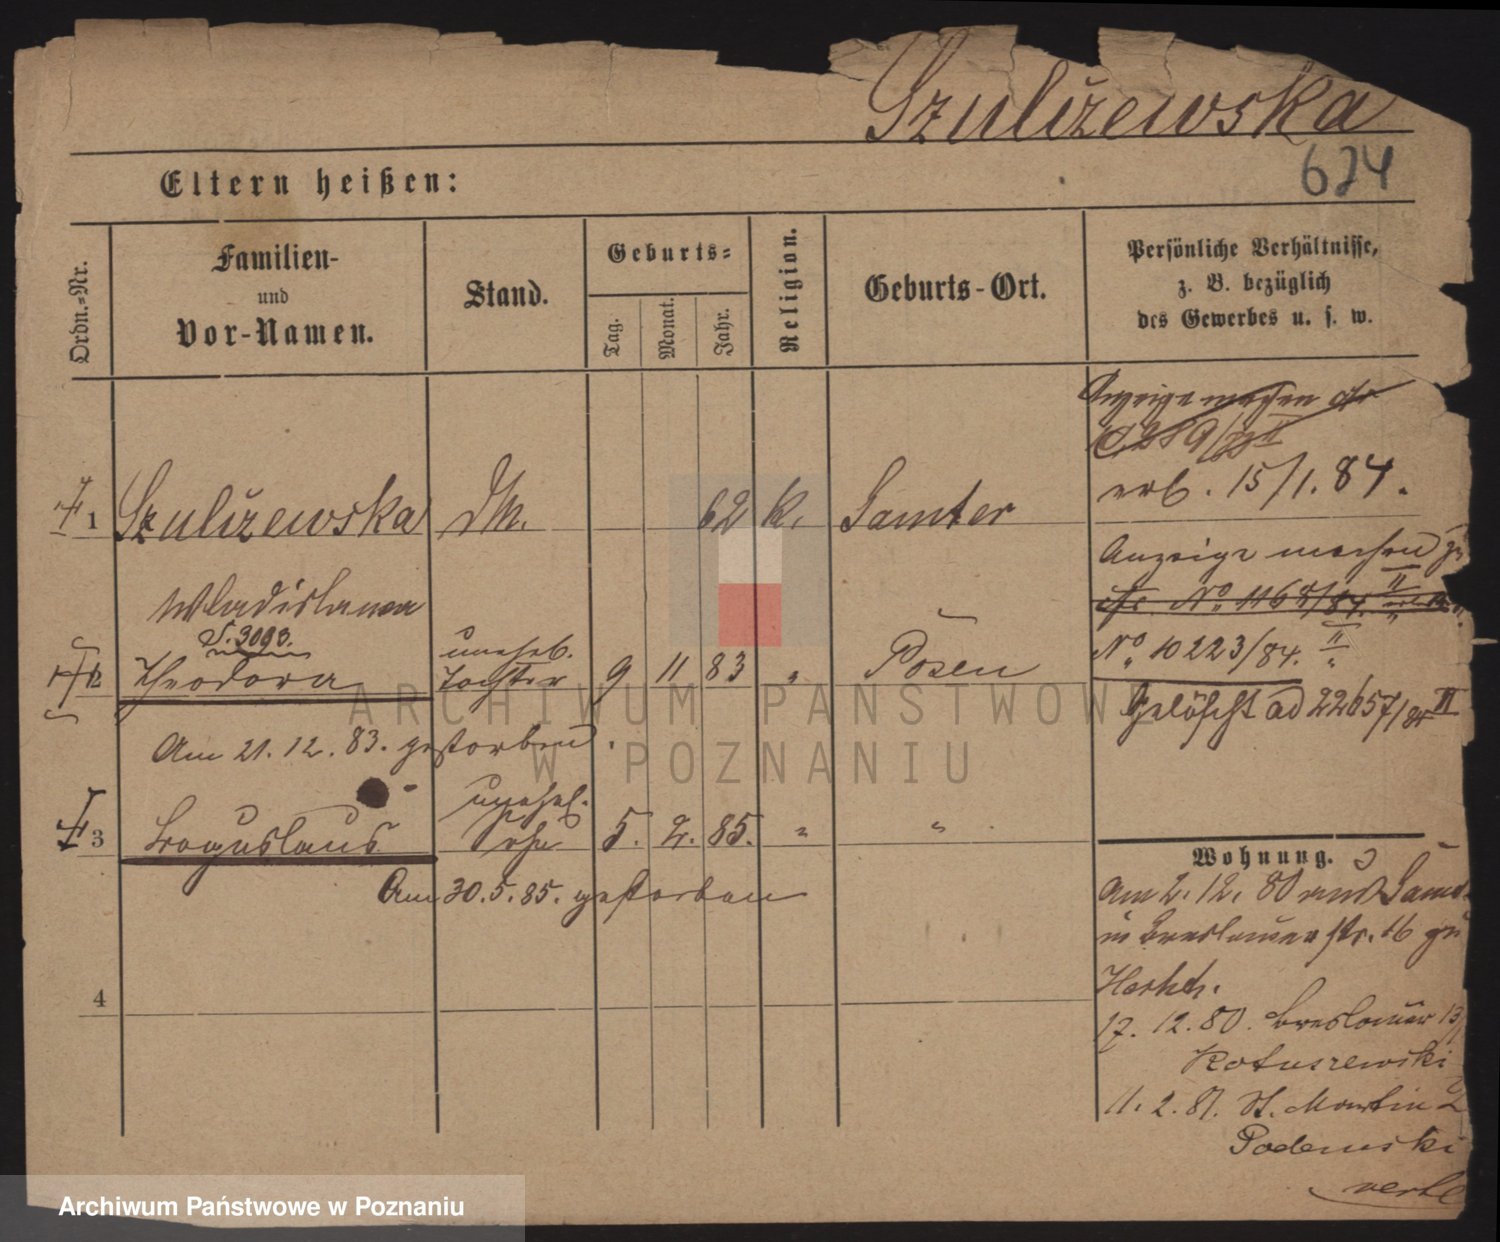 Szulczewska
674
Eltern heißen:
Ordn.-Nr.
Familien-
und
Vor-Namen.
Stand.
Geburts-
Tag.
Monat.
Jahr.
Religion.
Geburts-Ort.
Persönliche Verhältnisse,
z. B. bezüglich
des Gewerbes u. s. w.
Anzeige machen
erb. 15/1. 84.
1 Szulczewska DM. 62 k. Samter
Anzeige machen zu
No 1168/84. II
Wladislawa
No 10223/84. II
2 Theodora unehel. Tochter 9 11 83 " Posen
Gelöscht ad 22657/85 III
Am 21. 12. 83. gestorben.
3 Boguslaus unehel. Sohn 5. 2. 85. " "
Am 30. 5. 85. gestorben
Wohnung.
Am 2. 12. 80 aus Samter
in Breslauer str. 16 zu
4
17. 12. 80. Breslauer 13
Ratuszewski
11. 2. 81. St. Martin 2
Podemski
ARCHIWUM PAŃSTWOWE
W POZNANIU
Archiwum Państwowe w Poznaniu